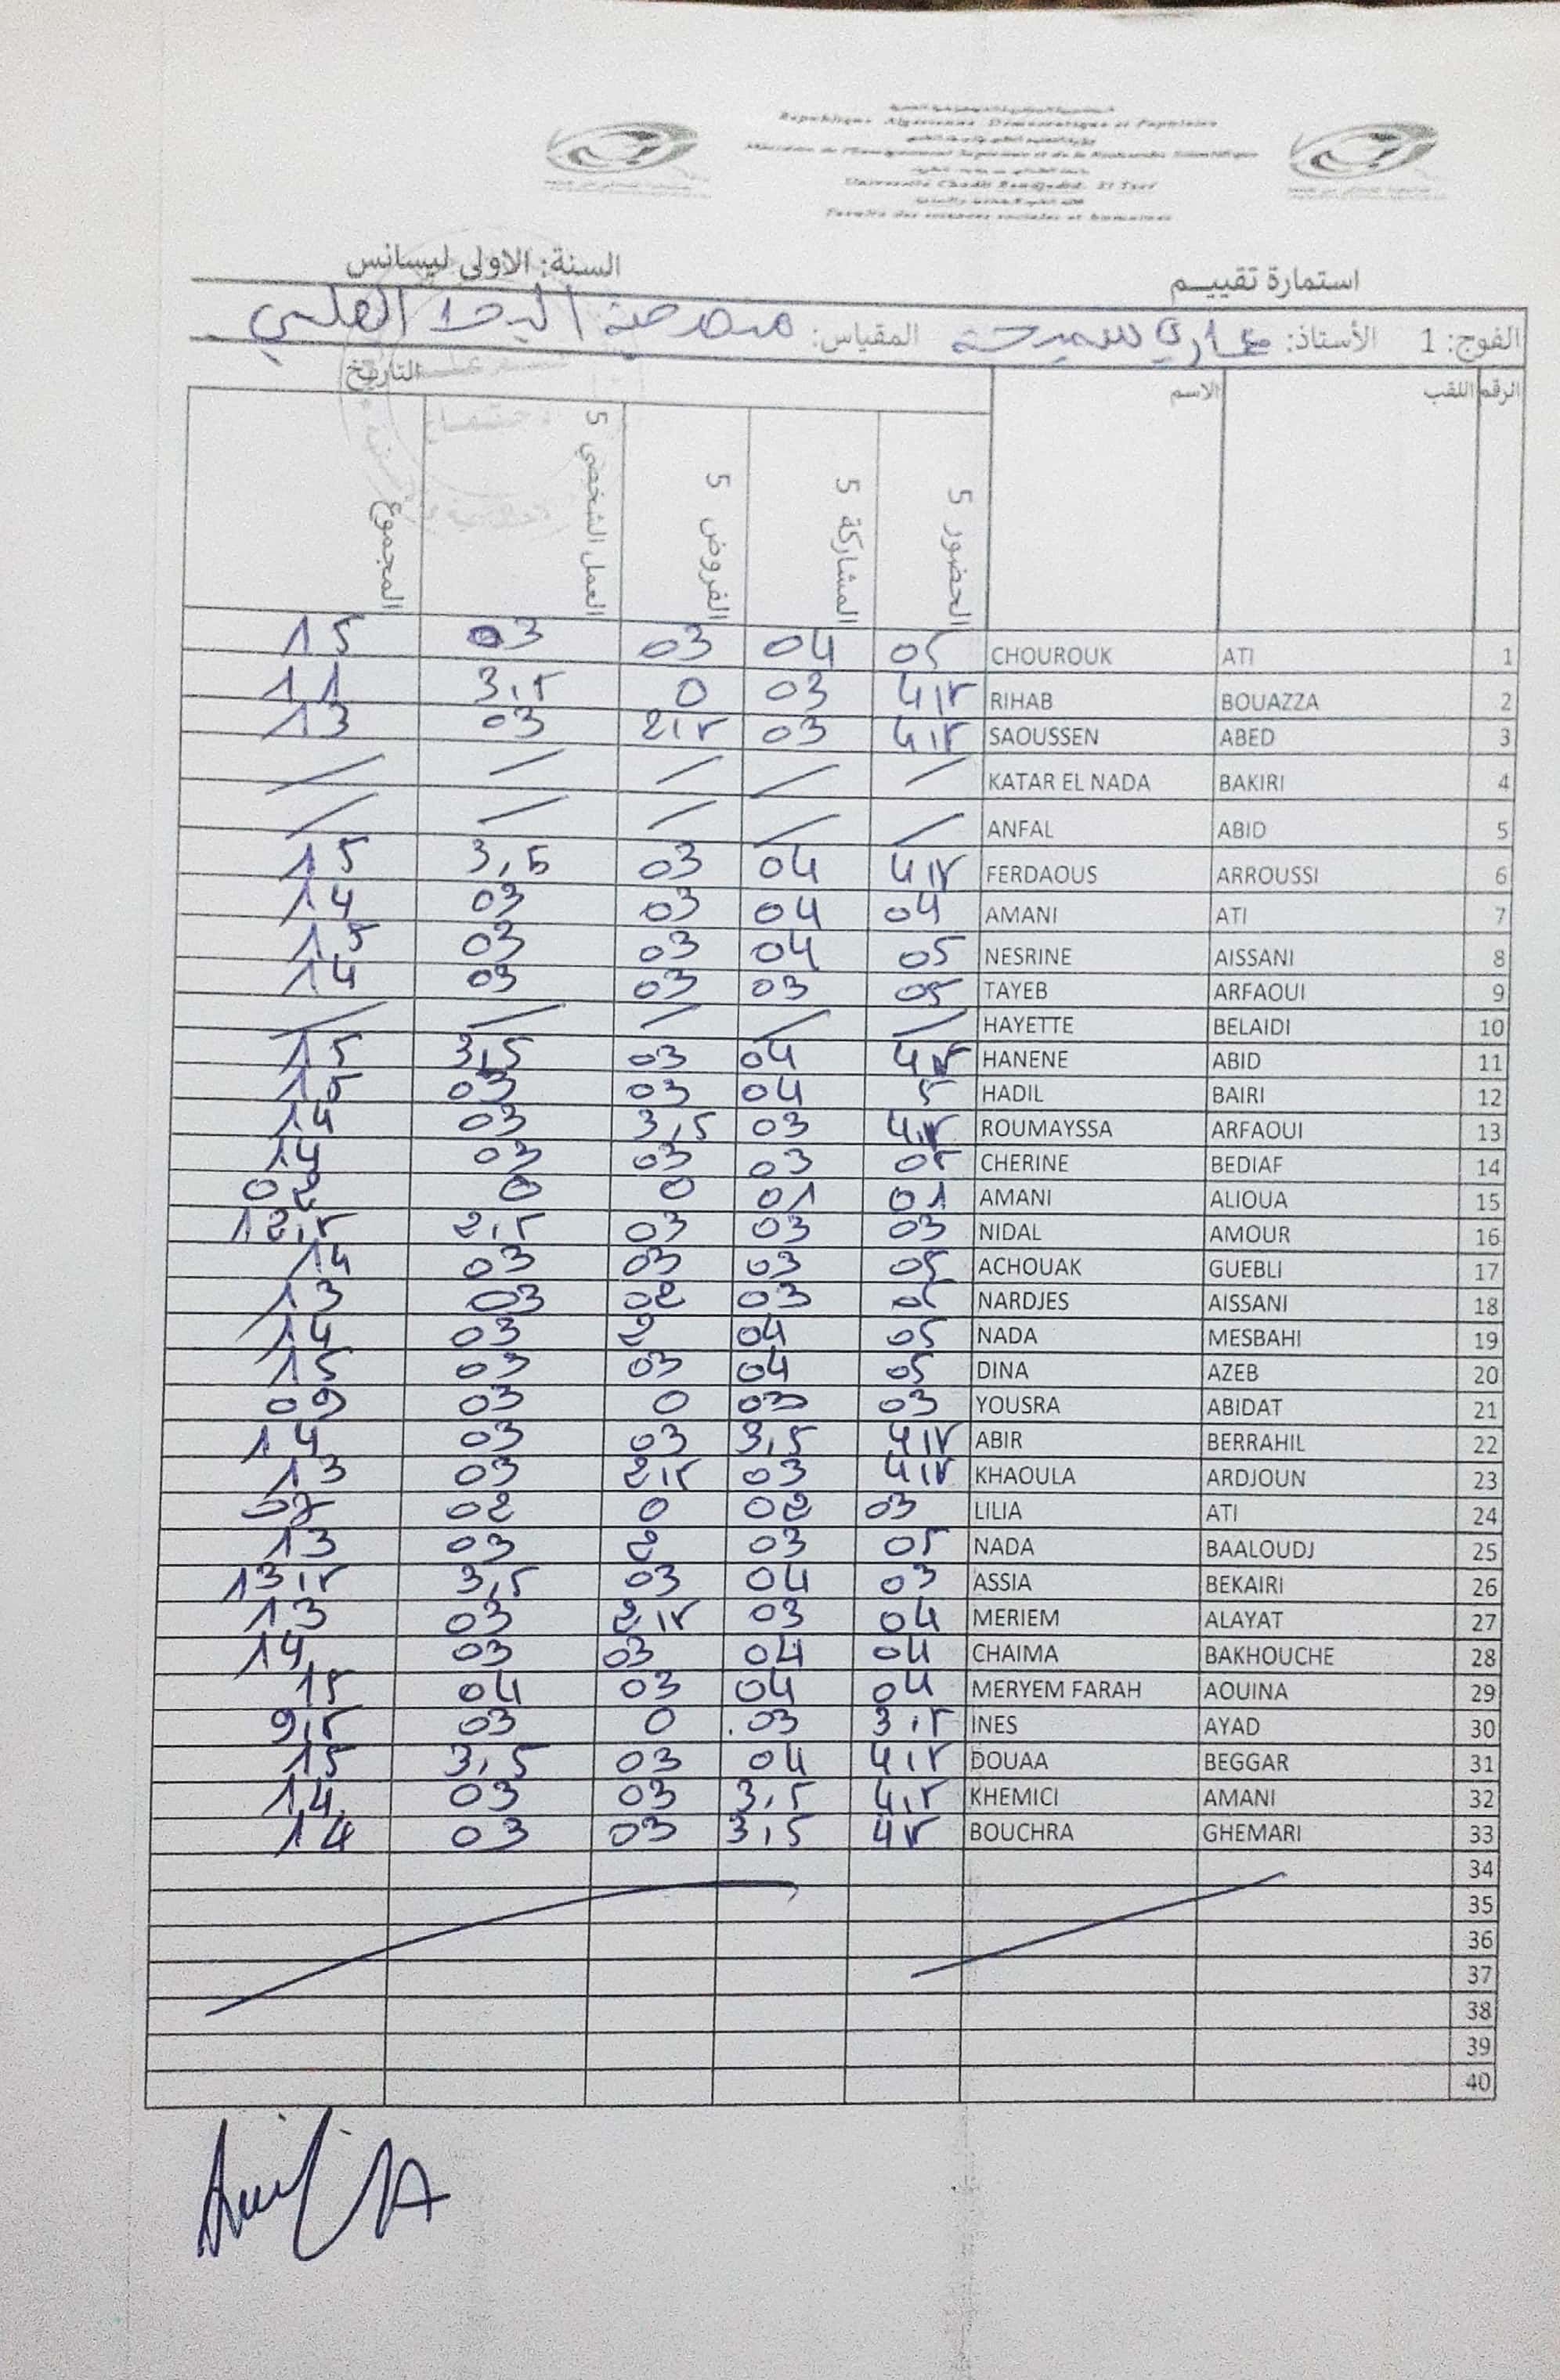 République Algérienne Démocratique et Populaire
Ministère de l'Enseignement Supérieur et de la Recherche Scientifique
Université Chadli Bendjedid, El Tarf
Faculté des sciences sociales et humaines
استمارة تقييم السنة: الاولى ليسانس
الفوج: 1 الأستاذ: سميحة المقياس: منهجية البحث العلمي
الرقم اللقب الاسم التاريخ
الحضور 5 المشاركة 5 الفروض 5 العمل الشخصي 5 المجموع
1 ATI CHOUROUK 05 04 03 03 15
2 BOUAZZA RIHAB 4,5 03 0 3,5 11
3 ABED SAOUSSEN 4,5 03 2,5 03 13
4 BAKIRI KATAR EL NADA / / / / /
5 ABID ANFAL / / / / /
6 ARROUSSI FERDAOUS 4,5 04 03 3,5 15
7 ATI AMANI 04 04 03 03 14
8 AISSANI NESRINE 05 04 03 03 15
9 ARFAOUI TAYEB 05 03 03 03 14
10 BELAIDI HAYETTE / / / / /
11 ABID HANENE 4,5 04 03 3,5 15
12 BAIRI HADIL 5 04 03 03 15
13 ARFAOUI ROUMAYSSA 4,5 03 3,5 03 14
14 BEDIAF CHERINE 05 03 03 03 14
15 ALIOUA AMANI 01 01 0 0 02
16 AMOUR NIDAL 03 03 03 2,5 12,5
17 GUEBLI ACHOUAK 05 03 03 03 14
18 AISSANI NARDJES 05 03 02 03 13
19 MESBAHI NADA 05 04 2 03 14
20 AZEB DINA 05 04 03 03 15
21 ABIDAT YOUSRA 03 03 0 03 09
22 BERRAHIL ABIR 4,5 3,5 03 03 14
23 ARDJOUN KHAOULA 4,5 03 2,5 03 13
24 ATI LILIA 03 02 0 02 07
25 BAALOUDJ NADA 05 03 2 03 13
26 BEKAIRI ASSIA 03 04 03 3,5 13,5
27 ALAYAT MERIEM 04 03 2,5 03 13
28 BAKHOUCHE CHAIMA 04 04 03 03 14
29 AOUINA MERYEM FARAH 04 04 03 04 15
30 AYAD INES 3,5 03 0 03 9,5
31 BEGGAR DOUAA 4,5 04 03 3,5 15
32 AMANI KHEMICI 4,5 3,5 03 03 14
33 GHEMARI BOUCHRA 4,5 3,5 03 03 14
34
35
36
37
38
39
40